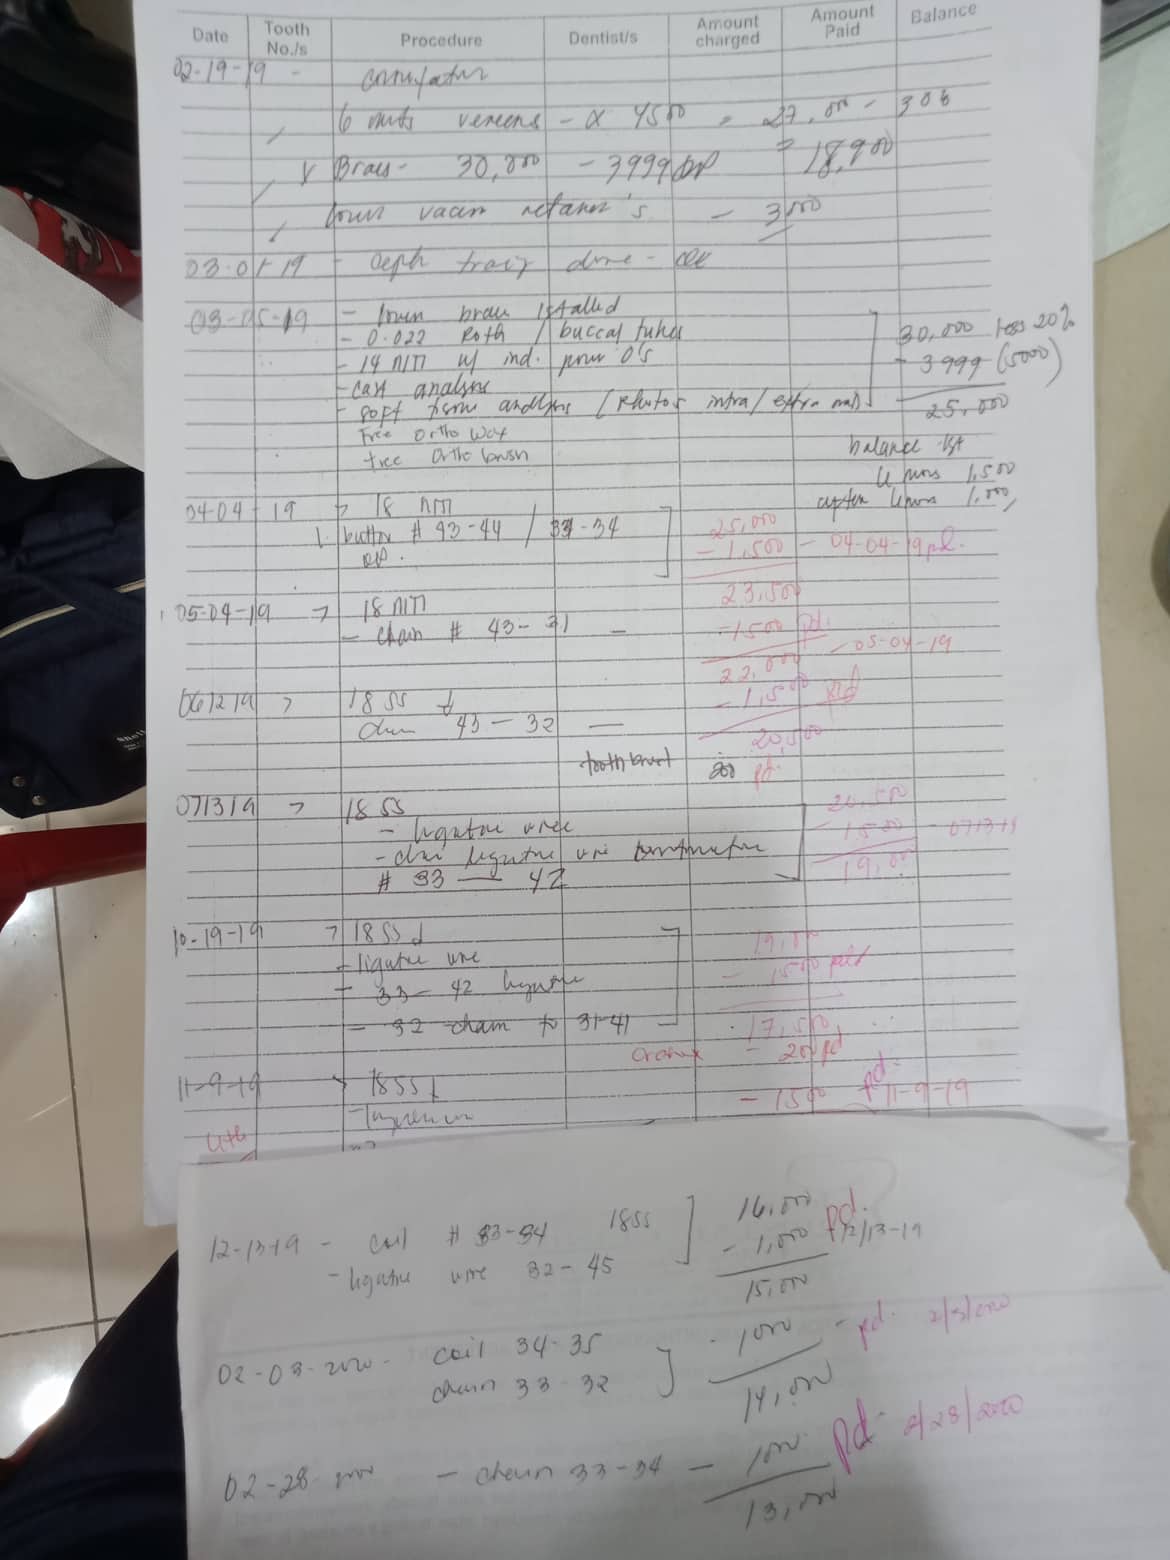 Date Tooth No./s Procedure Dentist/s Amount charged Amount Paid Balance
02-19-19 -
6 units veneers - x 4500 = 27,000 - 30%
Braces - 30,000 - 3999 DP = 18,900
lower retainer's - 3000
03-01-19 - ceph done -
03-05-19 - lower installed
- 0.022 Roth / buccal tubes
30,000 less 20%
- 14 NITI w/ ind. power O's
- 3999 (5000)
- cast analysis
- soft tissue analysis (photos intra/extra oral)
25,000
Free Ortho wax
free Ortho brush
balance 1st
6 mos 1,500
after 6 mos 1,000,
04-04-19 > 18 NITI
25,000
button # 43-44 / 33-34
- 1,500 - 04-04-19 pd.
23,500
05-04-19 > 18 NITI
- chain # 43-31 -
-1500 pd.
- 05-04-19
22,000
061219 > 18 SS
- 1,500 pd
chain 43-32 -
20,500
tooth brush 200 pd.
071319 > 18 SS
20,500
- ligature wire
- 1500 - 071319
- ligature wire
19,000
# 33 - 42
10-19-19 > 18 SS
19,000
- ligature wire
- 1500 pd
- 33-42 ligature
- 32 chain to 31-41
17,500
- 200 pd
11-9-19 > 18 SS
- 1500 pd. 11-9-19
12-13-19 - coil # 33-34 18SS
16,000
- ligature wire 32-45
- 1,000 pd. 12/13-19
15,000
02-03-2020 - coil 34-35
- 1000 - pd. 2/3/2020
chain 33-32
14,000
02-28-2020 - chain 33-34 - 1000 pd. 2/28/2020
13,000